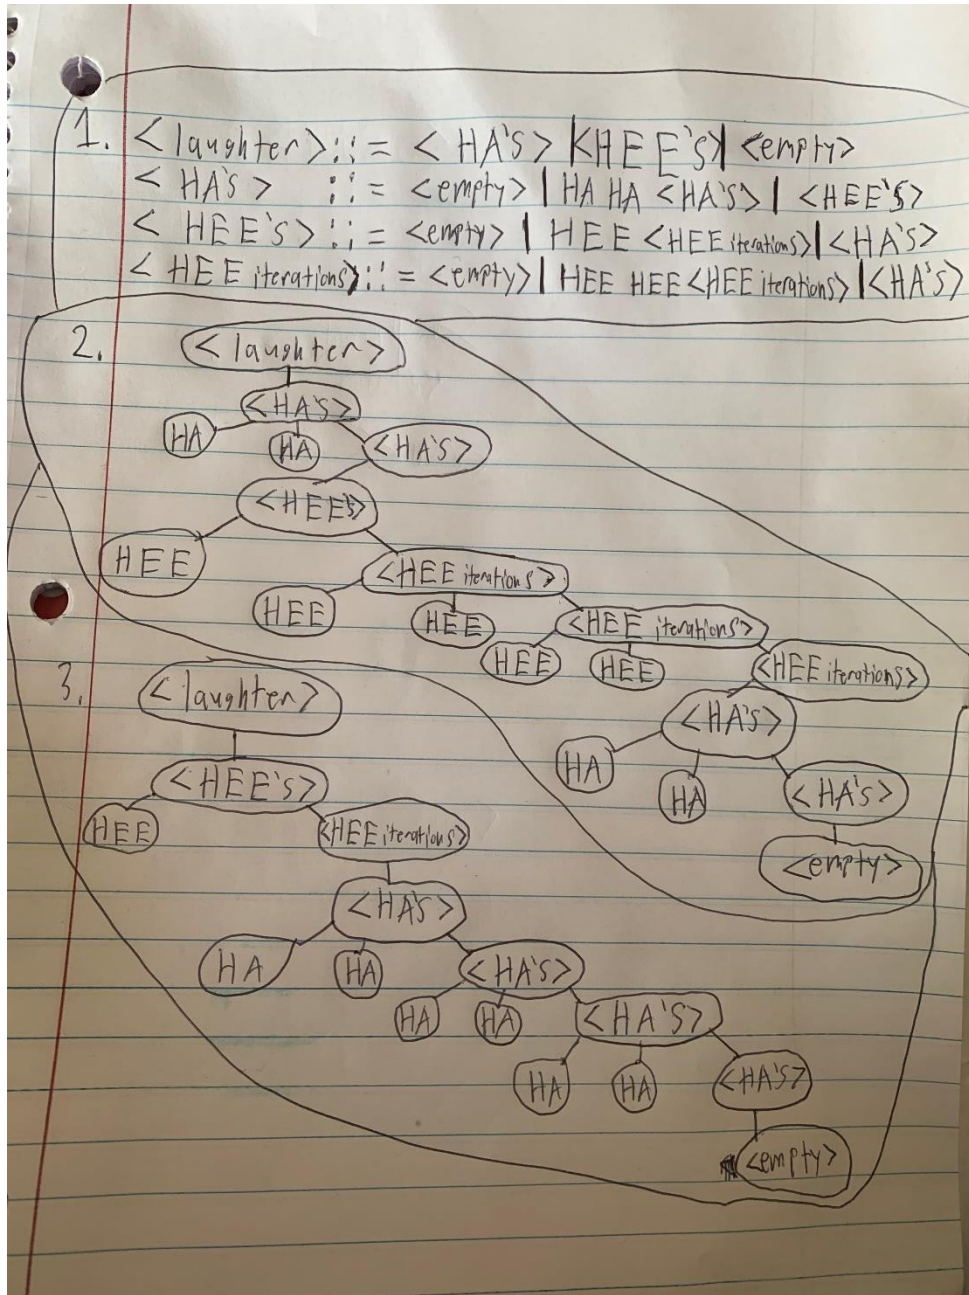 1. <laughter>::= <HA's> |<HEE's>| <empty>
<HA's> ::= <empty> | HA HA <HA's> | <HEE's>
<HEE's>::= <empty> | HEE <HEE iterations>|<HA's>
<HEE iterations>::= <empty>| HEE HEE <HEE iterations> |<HA's>
2. <laughter>
<HA's>
HA HA <HA's>
<HEE's>
HEE <HEE iterations>
HEE HEE <HEE iterations>
HEE HEE <HEE iterations>
<HA's>
HA HA <HA's>
<empty>
3. <laughter>
<HEE's>
HEE <HEE iterations>
<HA's>
HA HA <HA's>
HA HA <HA's>
HA HA <HA's>
<empty>